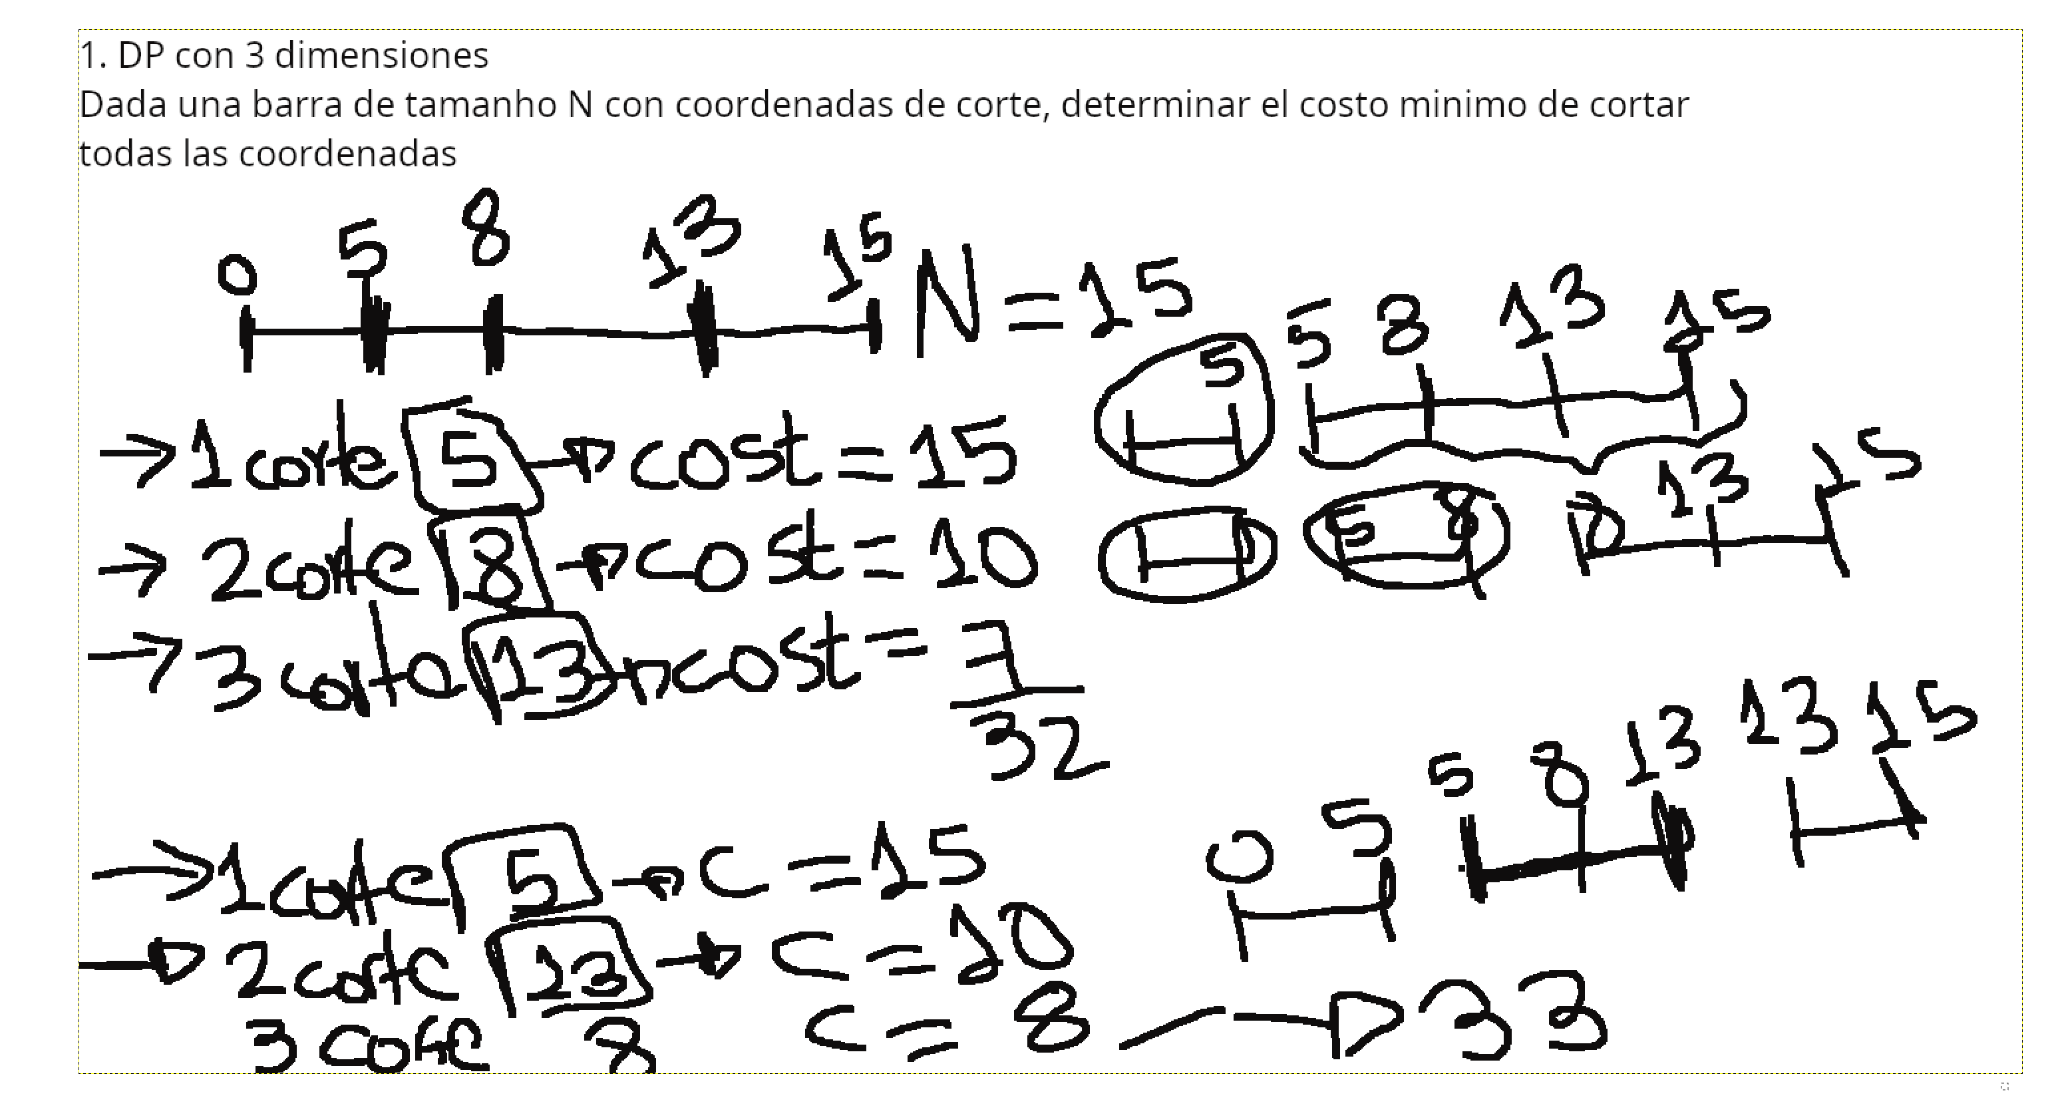 1. DP con 3 dimensiones
Dada una barra de tamanho N con coordenadas de corte, determinar el costo minimo de cortar
todas las coordenadas
0 5 8 13 15 N = 15
5 5 8 13 15
→ 1 corte 5 → cost = 15
5 8 8 13 15
→ 2 corte 8 → cost = 10
→ 3 corte 13 → cost = 7
32
0 5 5 8 13 13 15
→ 1 corte 5 → C = 15
→ 2 corte 13 → C = 10
3 corte 8 C = 8 → 33